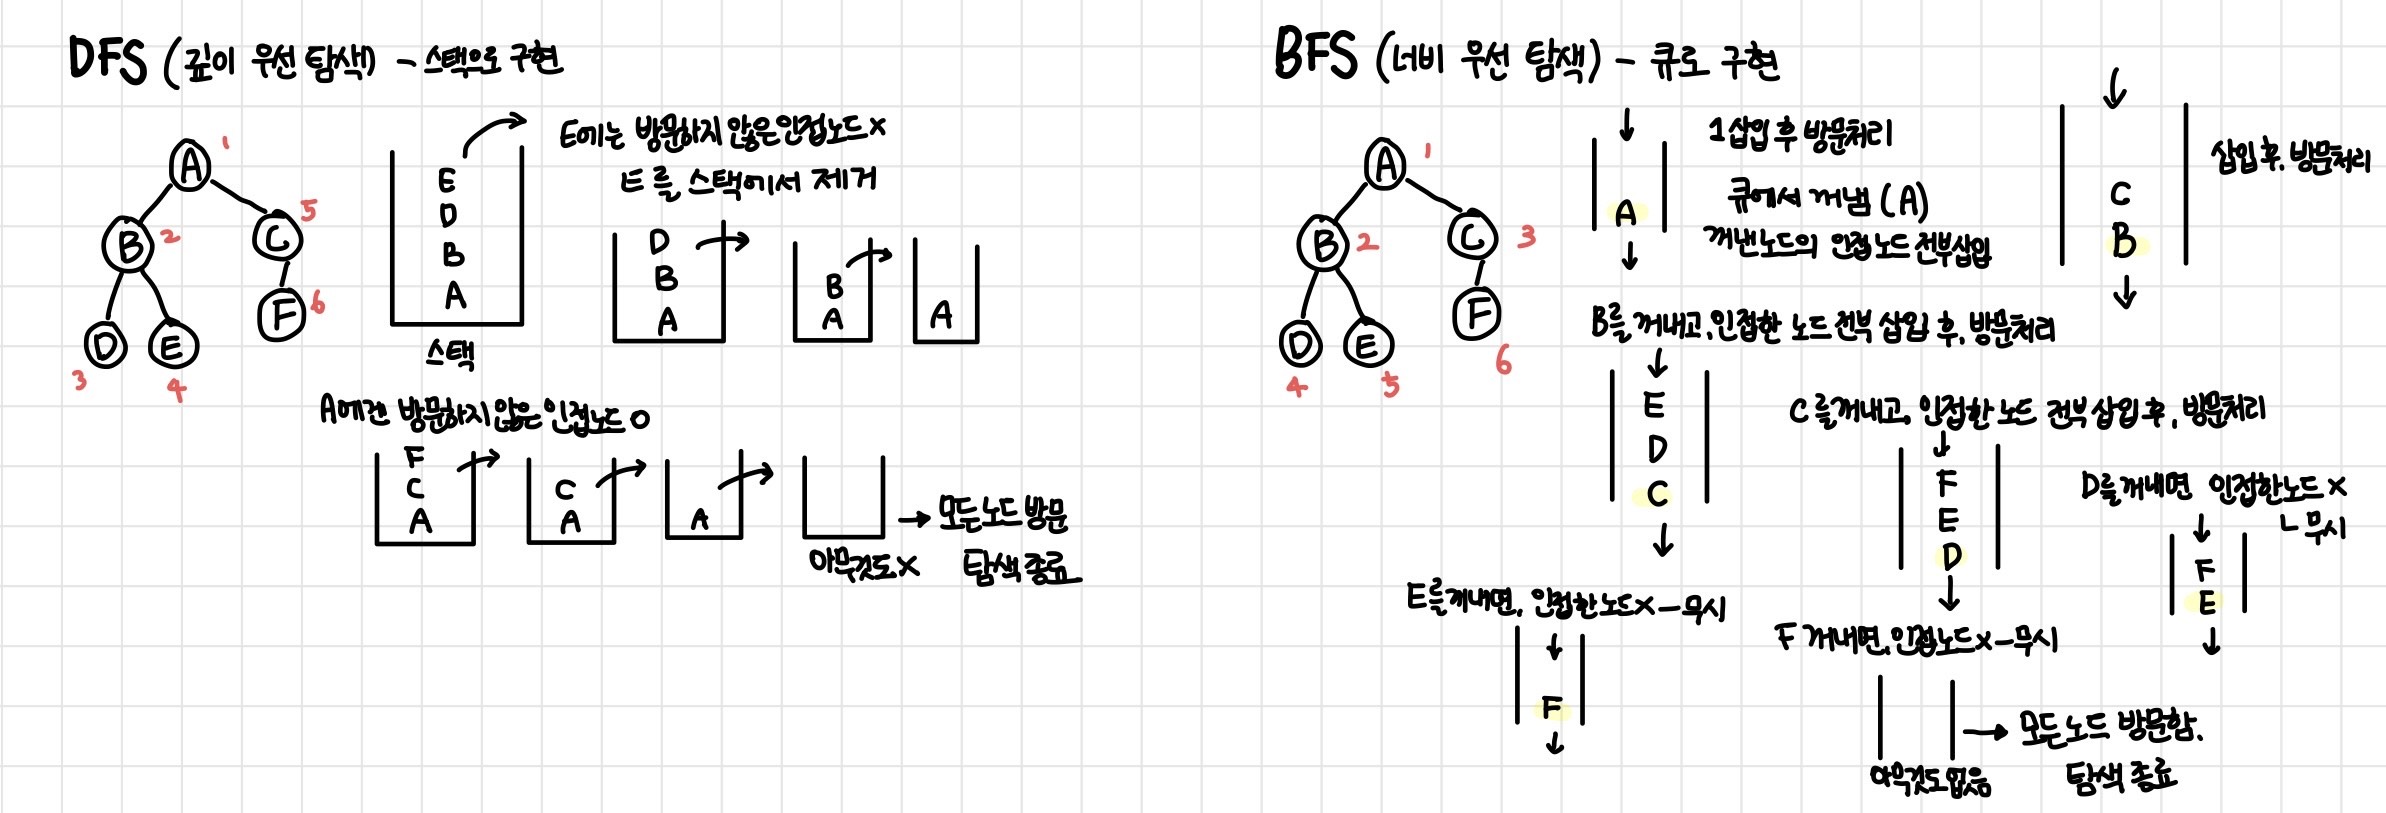 DFS (깊이 우선 탐색) - 스택으로 구현
A 1
B 2
C 5
D 3
E 4
F 6
E
D
B
A
스택
E에는 방문하지 않은 인접노드 x
E를 스택에서 제거
D
B
A
B
A
A
A에겐 방문하지 않은 인접노드 O
F
C
A
C
A
A
아무것도 x
→ 모든 노드 방문
탐색 종료
BFS (너비 우선 탐색) - 큐로 구현
A 1
B 2
C 3
D 4
E 5
F 6
A
1 삽입 후 방문처리
큐에서 꺼냄 (A)
꺼낸 노드의 인접 노드 전부 삽입
C
B
삽입 후, 방문처리
B를 꺼내고, 인접한 노드 전부 삽입 후, 방문처리
E
D
C
C를 꺼내고, 인접한 노드 전부 삽입 후, 방문처리
F
E
D
D를 꺼내면 인접한 노드 x
ㄴ 무시
F
E
E를 꺼내면, 인접한 노드 x - 무시
F
F 꺼내면, 인접노드 x - 무시
아무것도 없음
→ 모든 노드 방문함.
탐색 종료